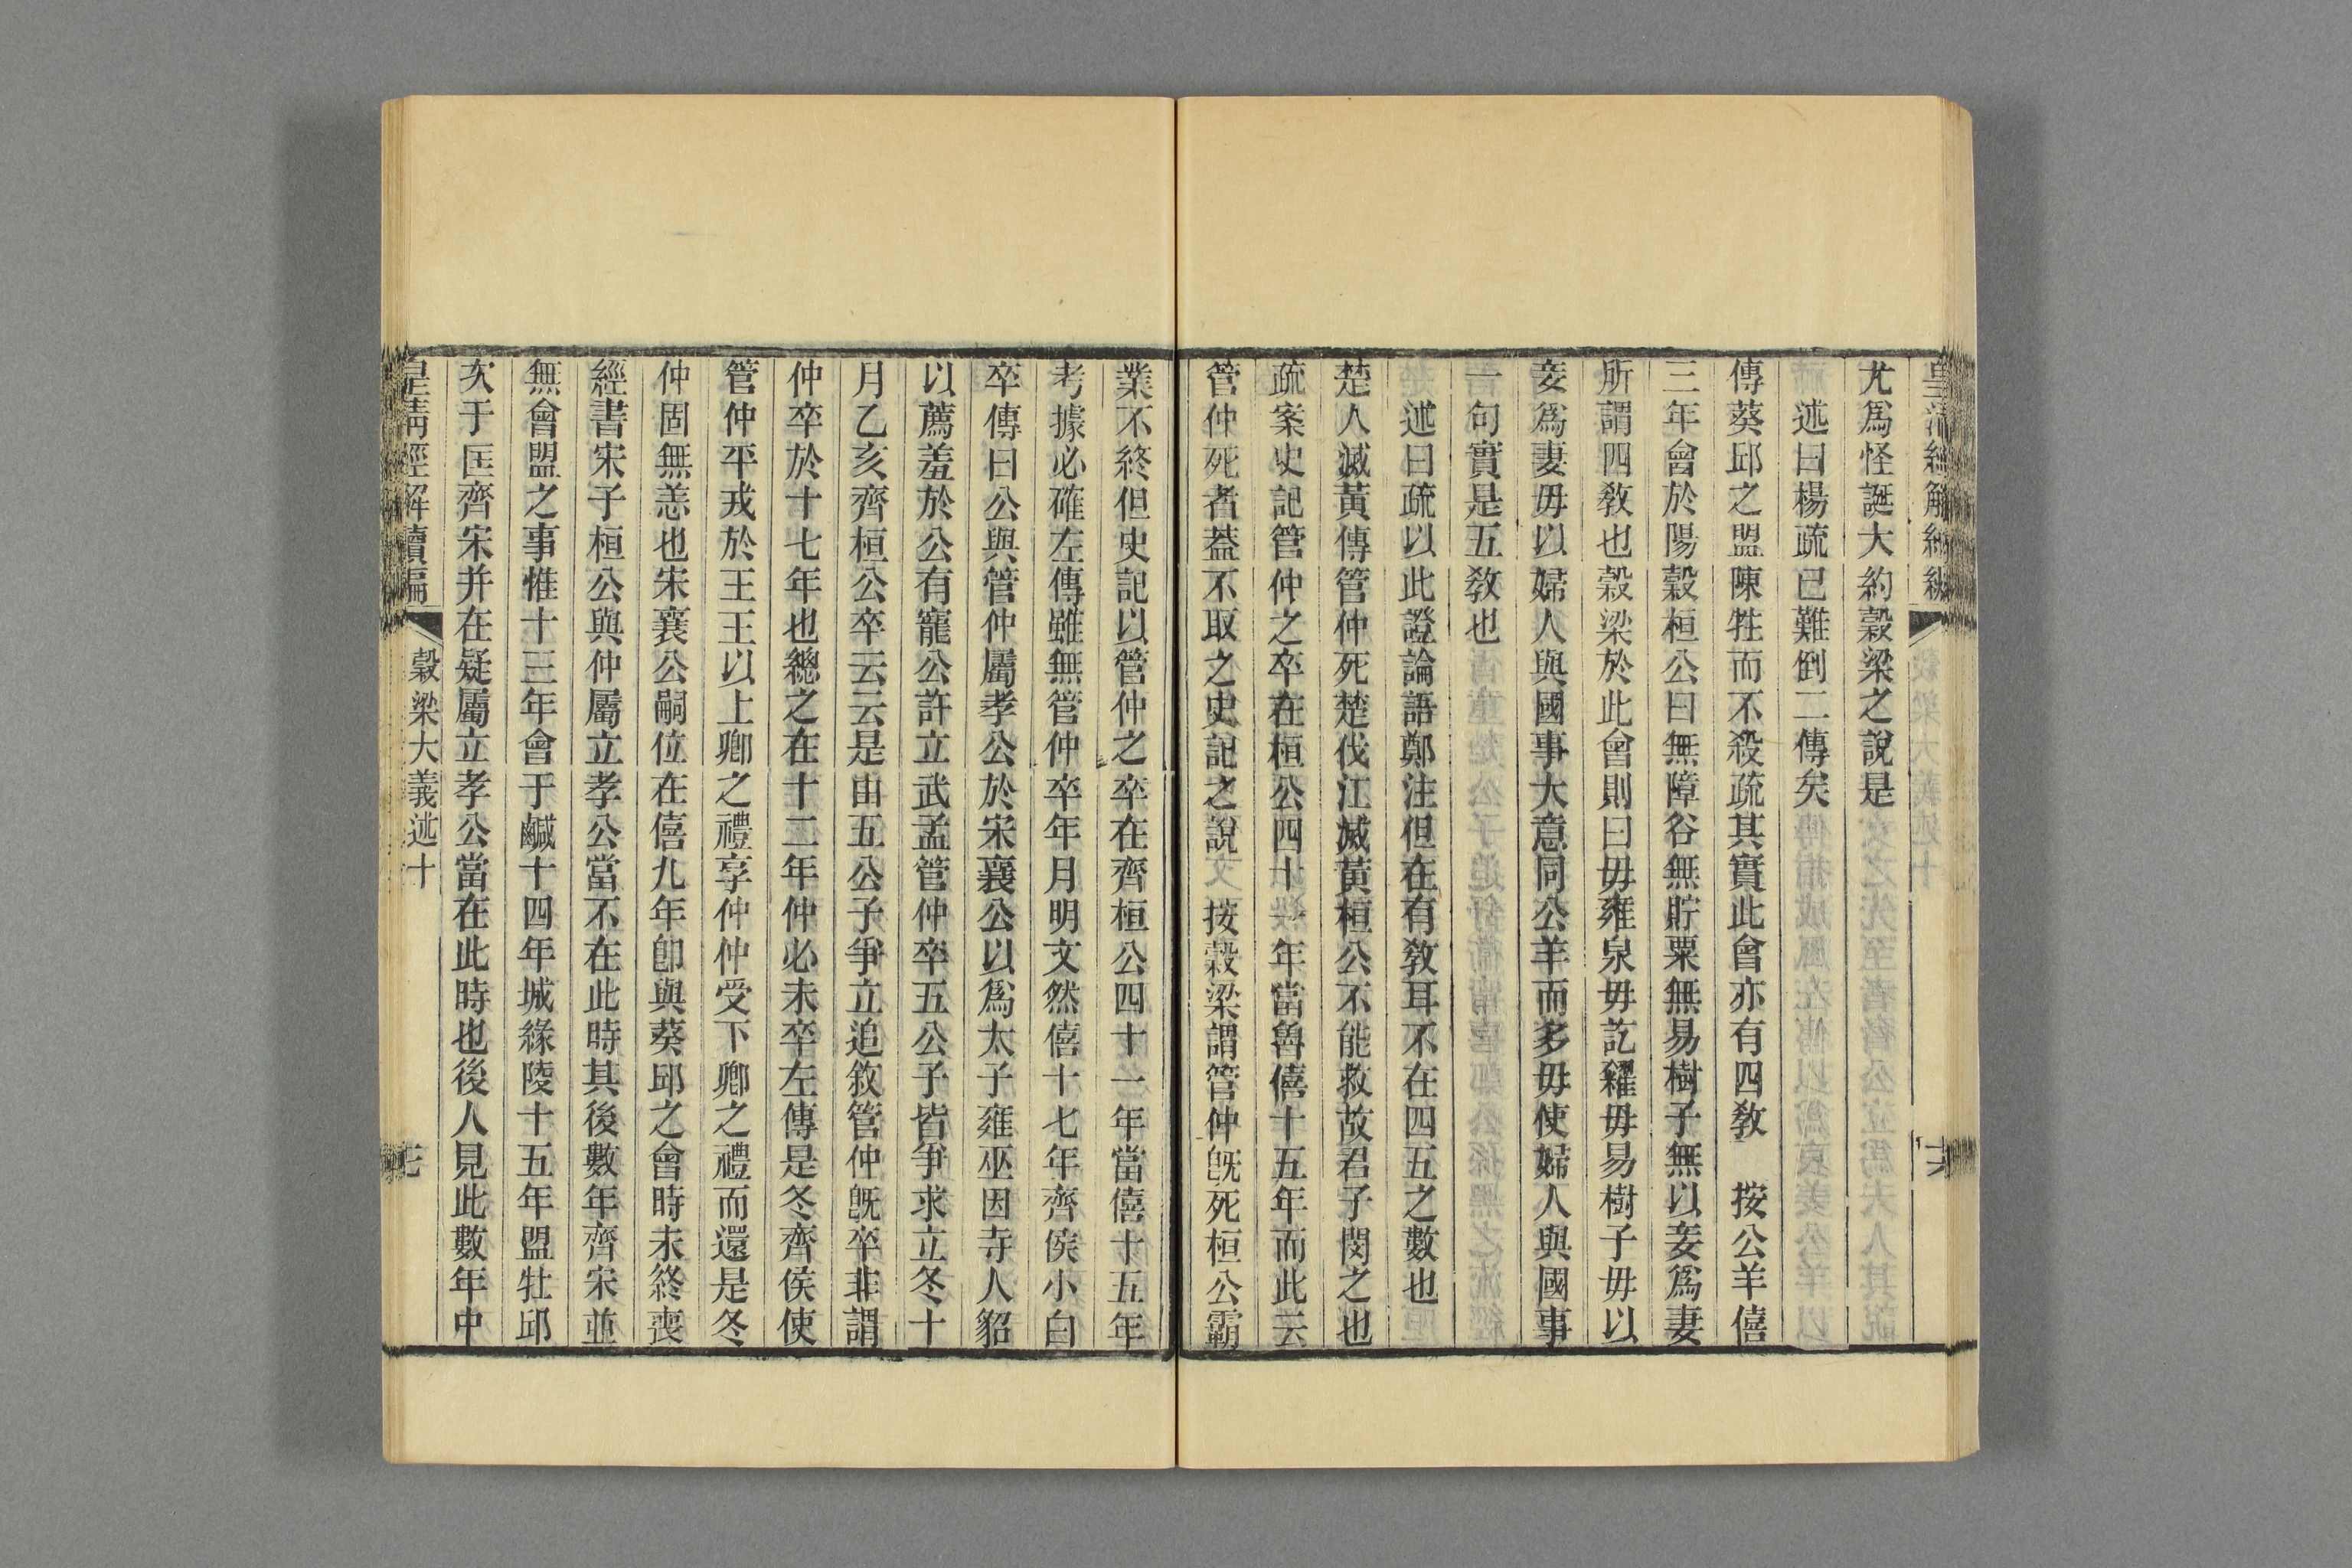 尤爲怪誕大約穀梁之說是
述曰楊疏已難倒二傳矣
傳葵邱之盟陳牲而不殺疏其實此會亦有四教　按公羊僖
三年會於陽穀桓公曰無障谷無貯粟無易樹子無以妾爲妻
所謂四教也穀梁於此會則曰毋雍泉毋訖糴毋易樹子毋以
妾爲妻毋以婦人與國事大意同公羊而多毋使婦人與國事
一句實是五教也
述曰疏以此證論語鄭注但在有教耳不在四五之數也
楚人滅黃傳管仲死楚伐江滅黃桓公不能救故君子閔之也
疏案史記管仲之卒在桓公四十一年當魯僖十五年而此云
管仲死者蓋不取之史記之說　按穀梁謂管仲旣死桓公霸
業不終但史記以管仲之卒在齊桓公四十一年當僖十五年
考據必確左傳雖無管仲卒年月明文然僖十七年齊侯小白
卒傳曰公與管仲屬孝公於宋襄公以爲太子雍巫因寺人貂
以薦羞於公有寵公許立武孟管仲卒五公子皆爭求立冬十
月乙亥齊桓公卒云云是由五公子爭立追敘管仲旣卒非謂
仲卒於十七年也總之在十二年仲必未卒左傳是冬齊侯使
管仲平戎於王王以上卿之禮享仲仲受下卿之禮而還是冬
仲固無恙也宋襄公嗣位在僖九年卽與葵邱之會時未終喪
經書宋子桓公與仲屬立孝公當不在此時其後數年齊宋並
無會盟之事惟十三年會于鹹十四年城緣陵十五年盟牡邱
次于匡齊宋并在疑屬立孝公當在此時也後人見此數年中
皇清經解續編　穀梁大義述十　七